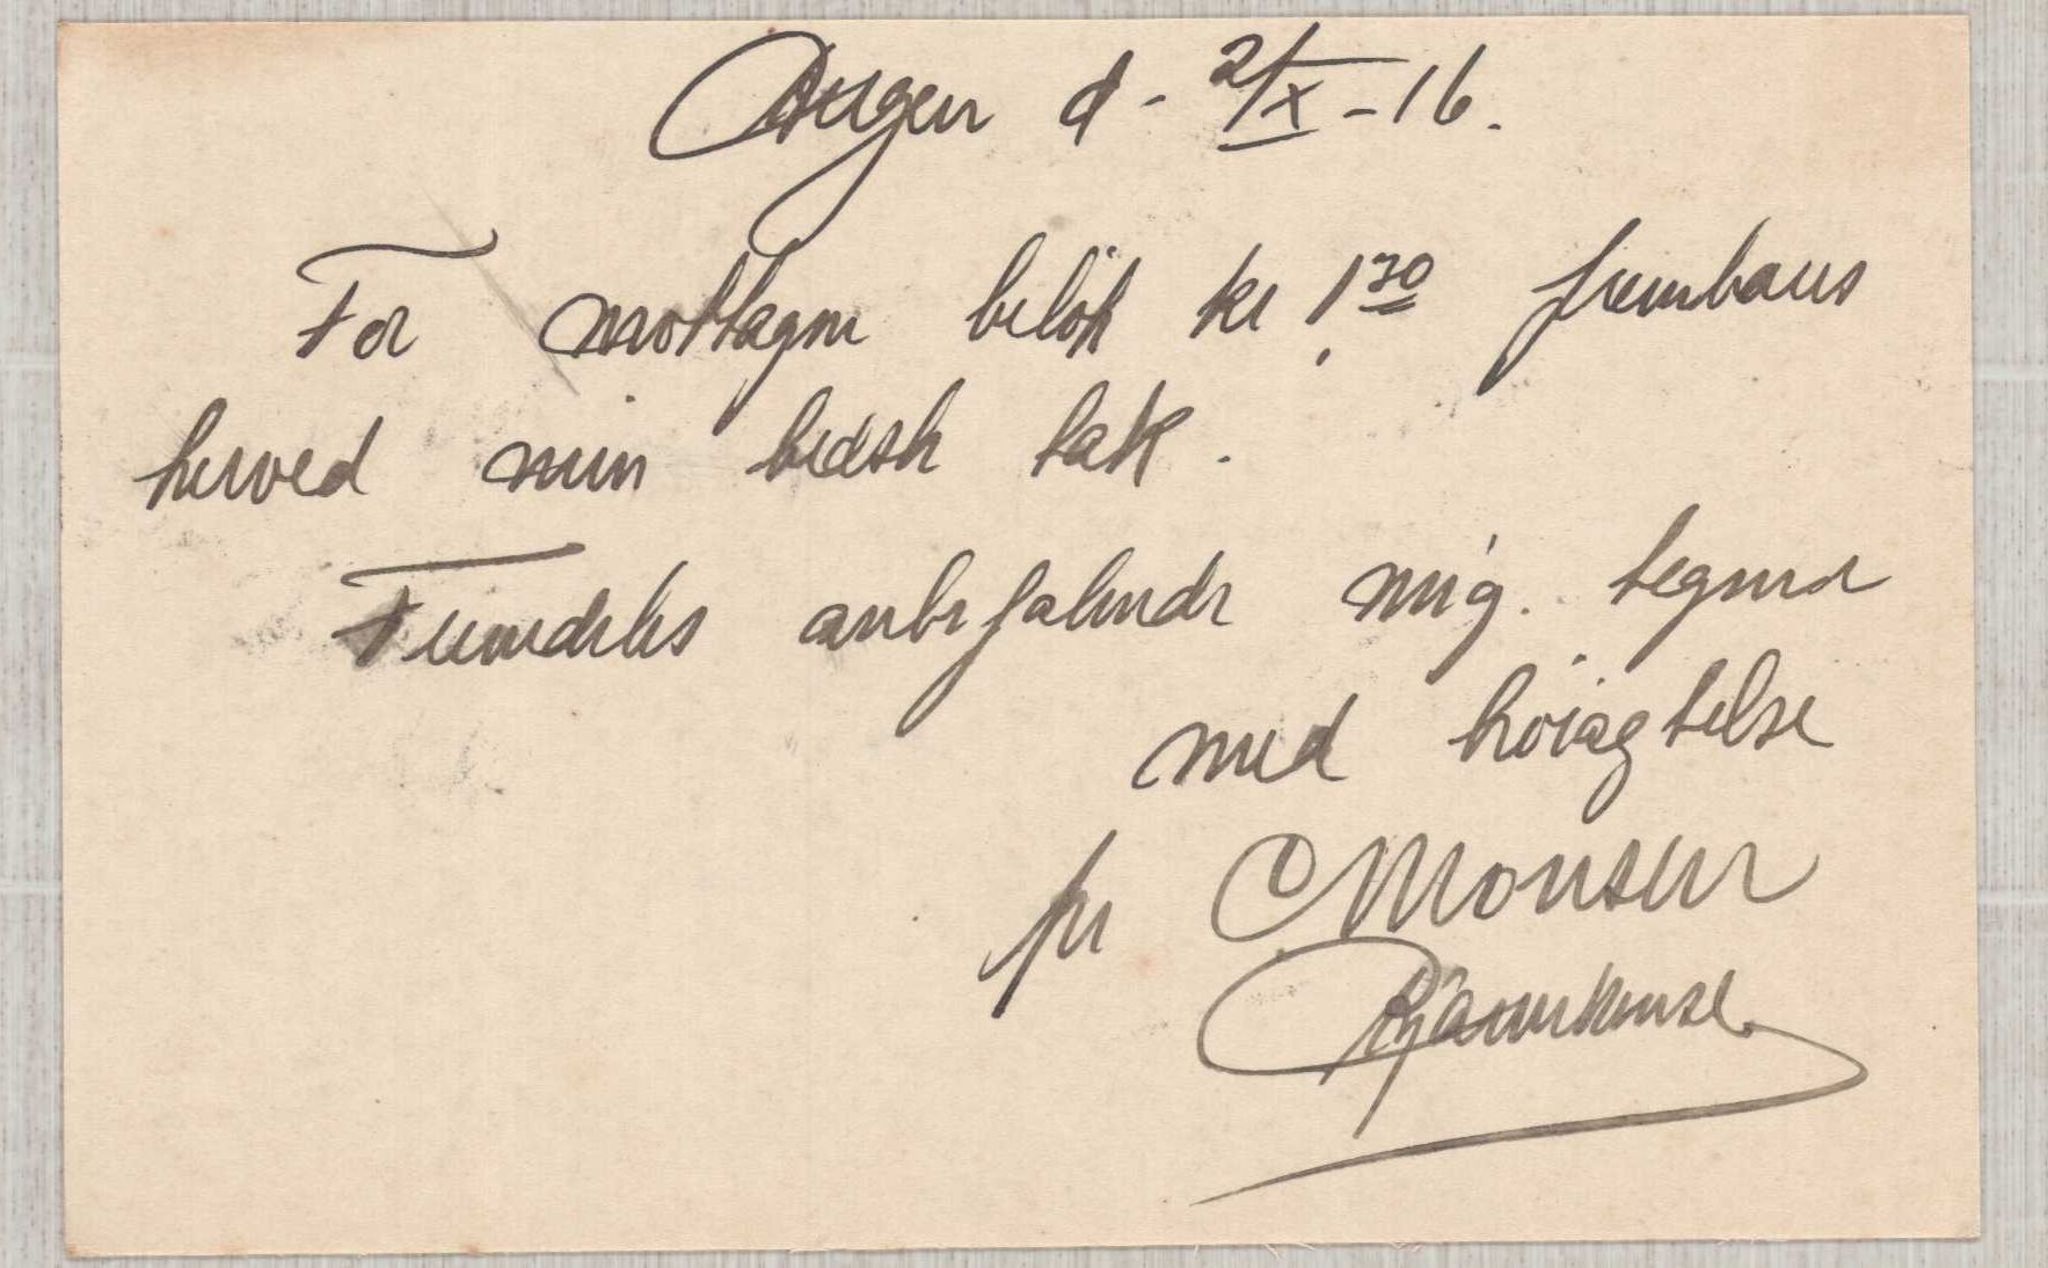 Bergen d. 2/X - 16.
For mottagne beløp kr. 1,30 frembæres
herved min bedste tak.
Fremdeles anbefalende mig. tegner
med høiagtelse
pr C Monsen